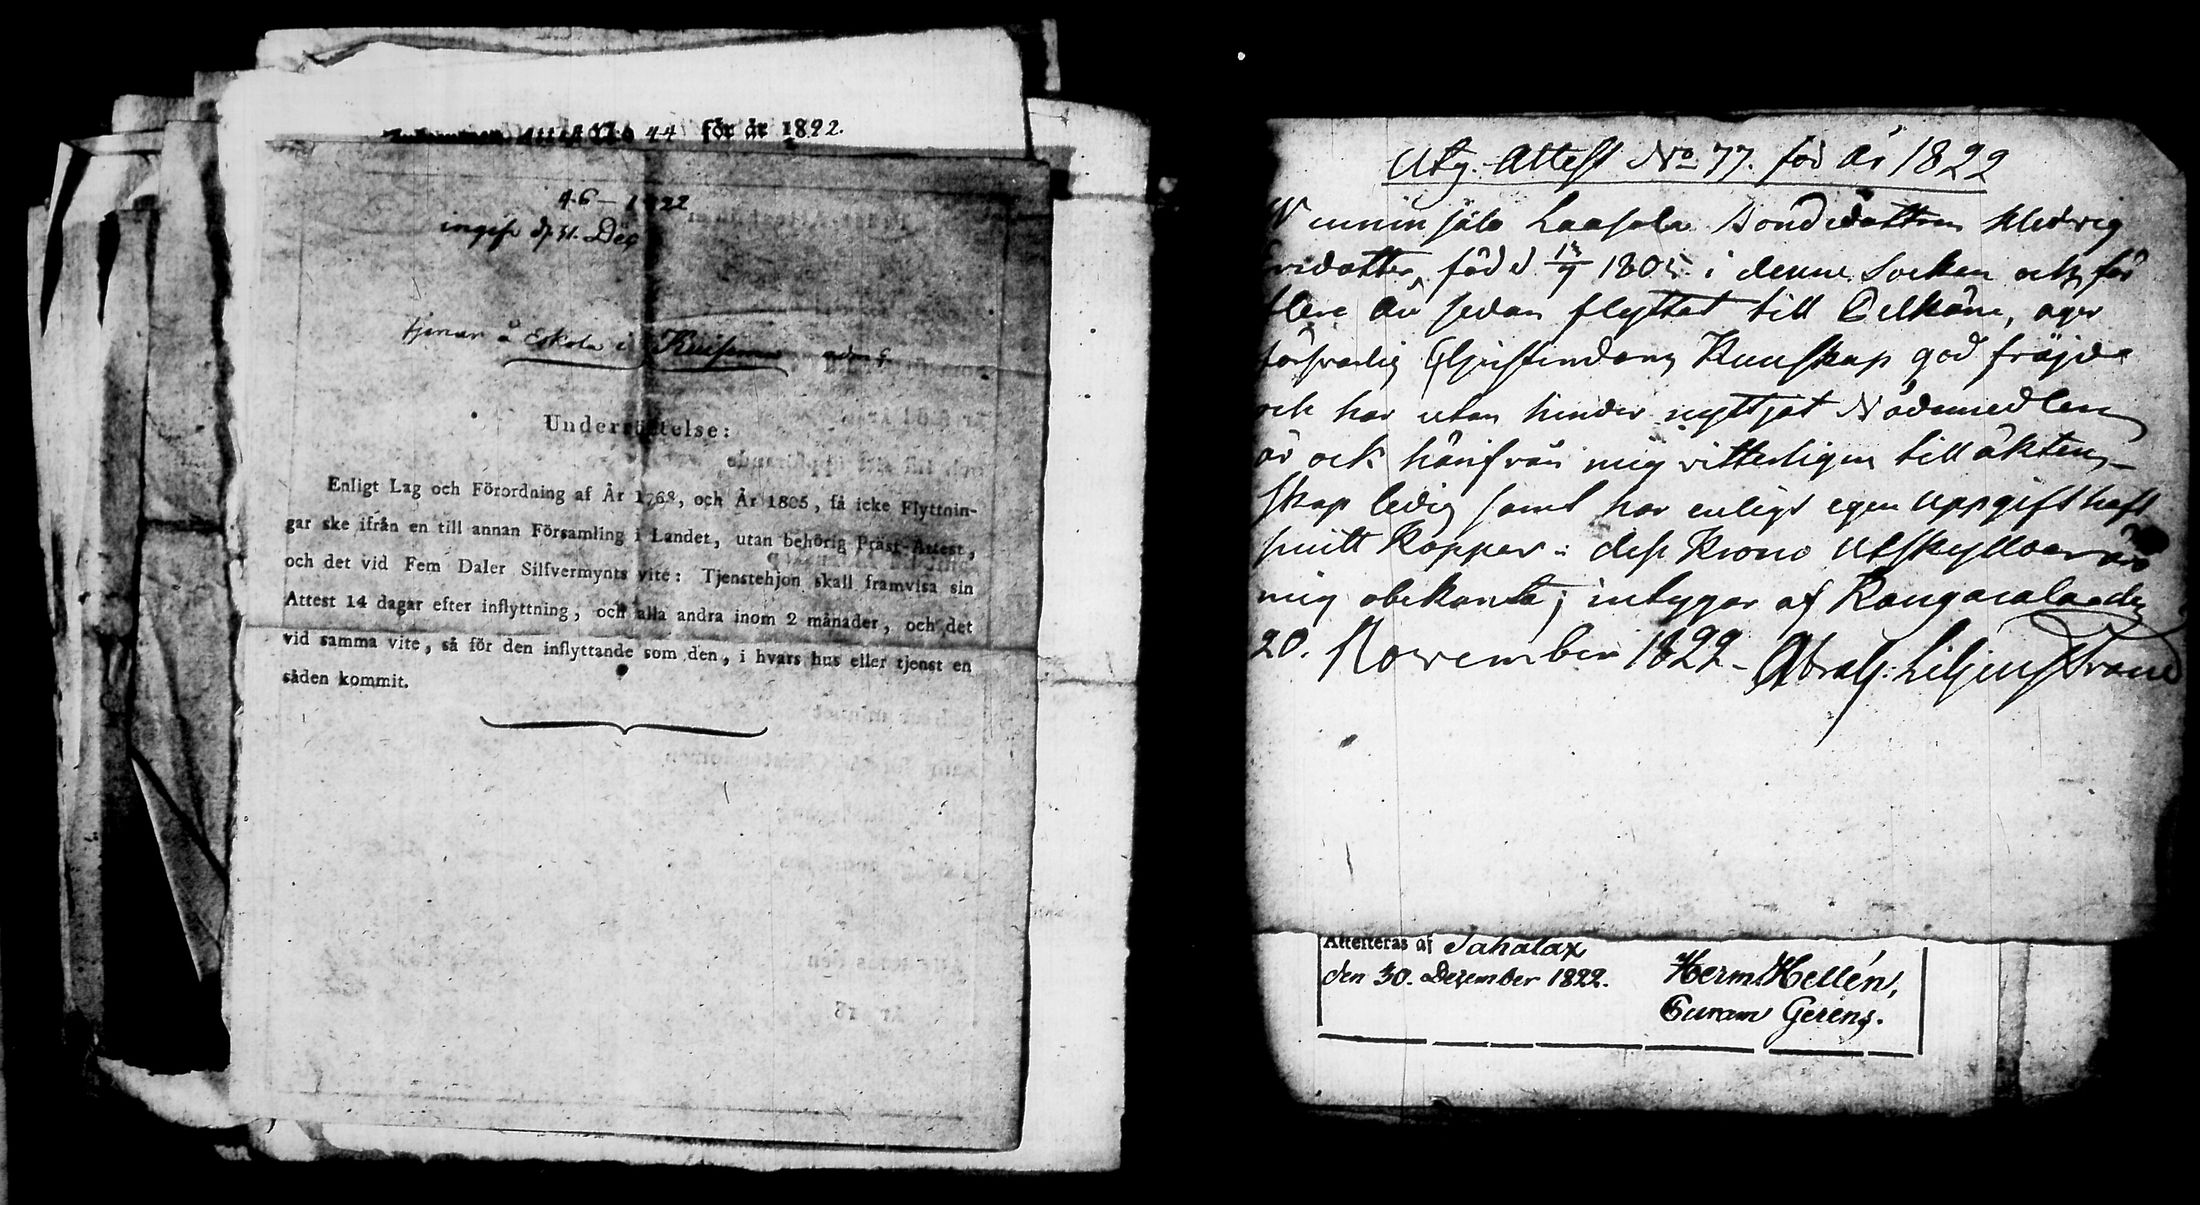 Attest No 44 för år 1822.
46 – 1822
ingifv d. 31. Dec
tjenar å Eskola i
Underrättelse:
Enligt Lag och Förordning af År 1768, och År 1805, få icke Flyttnin-
gar ske ifrån en till annan Församling i Landet, utan behörig Präst-Attest,
och det vid Fem Daler Silfvermynts vite: Tjenstehjon skall framvisa sin
Attest 14 dagar efter inflyttning, och alla andra inom 2 månader, och det
vid samma vite, så för den inflyttande som den, i hvars hus eller tjenst en
såden kommit.
Utg. Attest No 77. för år 1822
Laasola Bondedottren Hedwig
född 1805 i denna Socken och för
flere år sedan flyttat till Pelkäne, äger
försvarlig Christendoms Kunskap god fräjd
och har utan hinder nyttjat Nådemedlen
är ock härifrån mig vitterligen till äkten-
skap ledig samt har enligt egen uppgift haft
Koppor: dess Krono Utskylder äro
mig obekanta; intygar af Kangasala den
20. November 1822. Abrah: Liljenstrand
Attesteras af Sahalax
den 30. December 1822. Herm. Hellén,
Curam Gerens.